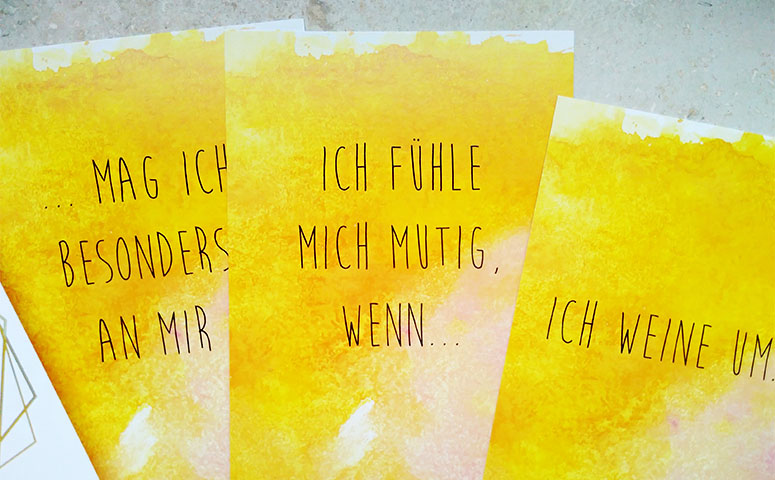 ... MAG ICH
BESONDERS
AN MIR
ICH FÜHLE
MICH MUTIG,
WENN...
ICH WEINE UM.